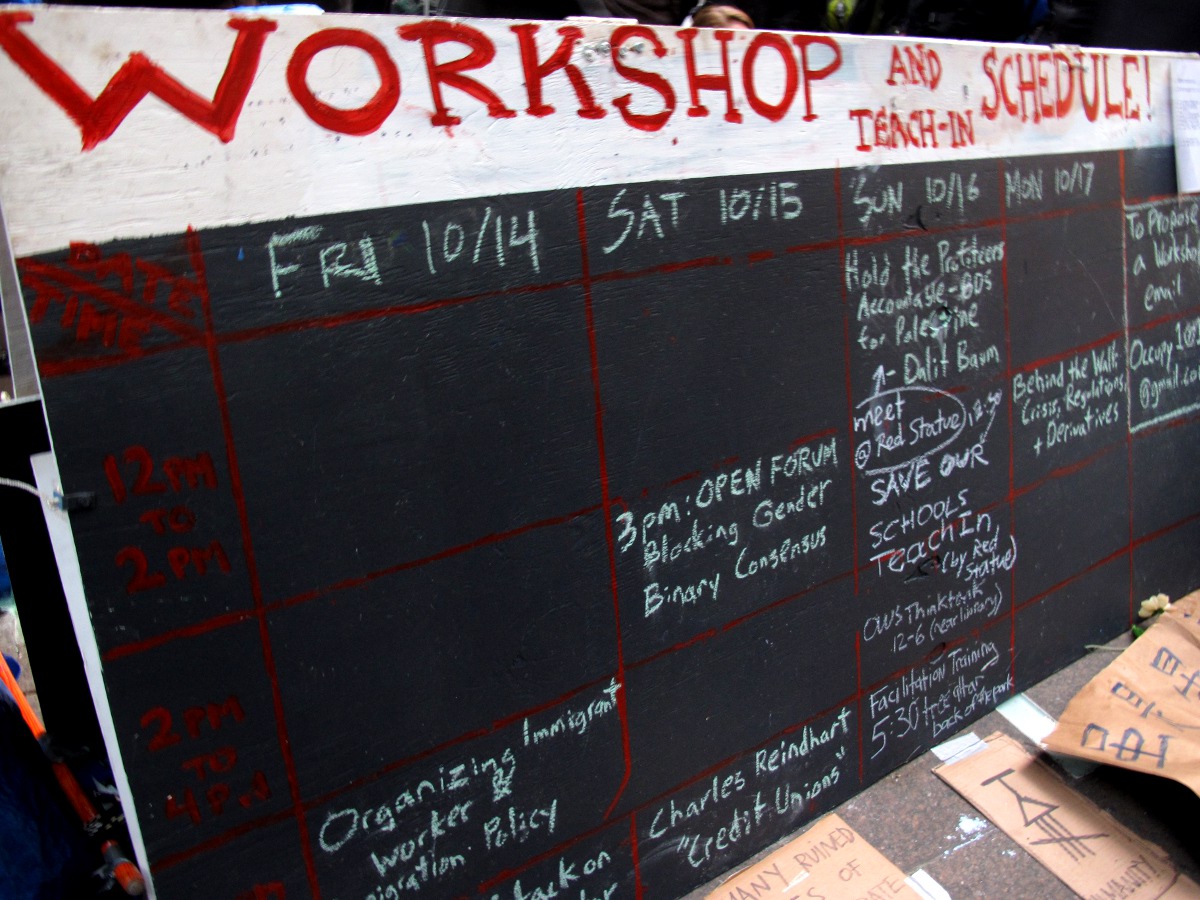 WORKSHOP AND TEACH-IN SCHEDULE!
DATE
TIME
FRI 10/14
SAT 10/15
SUN 10/16
MON 10/17
12 PM
TO
2 PM
2 PM
TO
4 PM
Organizing Immigrant
Worker &
Policy
3pm: OPEN FORUM
Blocking Gender
Binary Consensus
Charles Reindhart
"Credit Unions"
Hold the Profiteers
Accountable - BDS
for Palestine
- Dalit Baum
meet
@ Red Statue, 12:30
SAVE OUR
SCHOOLS
Teach In,
(by Red
Statue)
OWS Thinktank
12-6 (near library)
Facilitation Training
5:30 tree altar
back of the park
Behind the Wall:
Crisis, Regulations,
+ Derivatives
To Propose
a Workshop
email
Occupy
@gmail.com
RUINED
OF